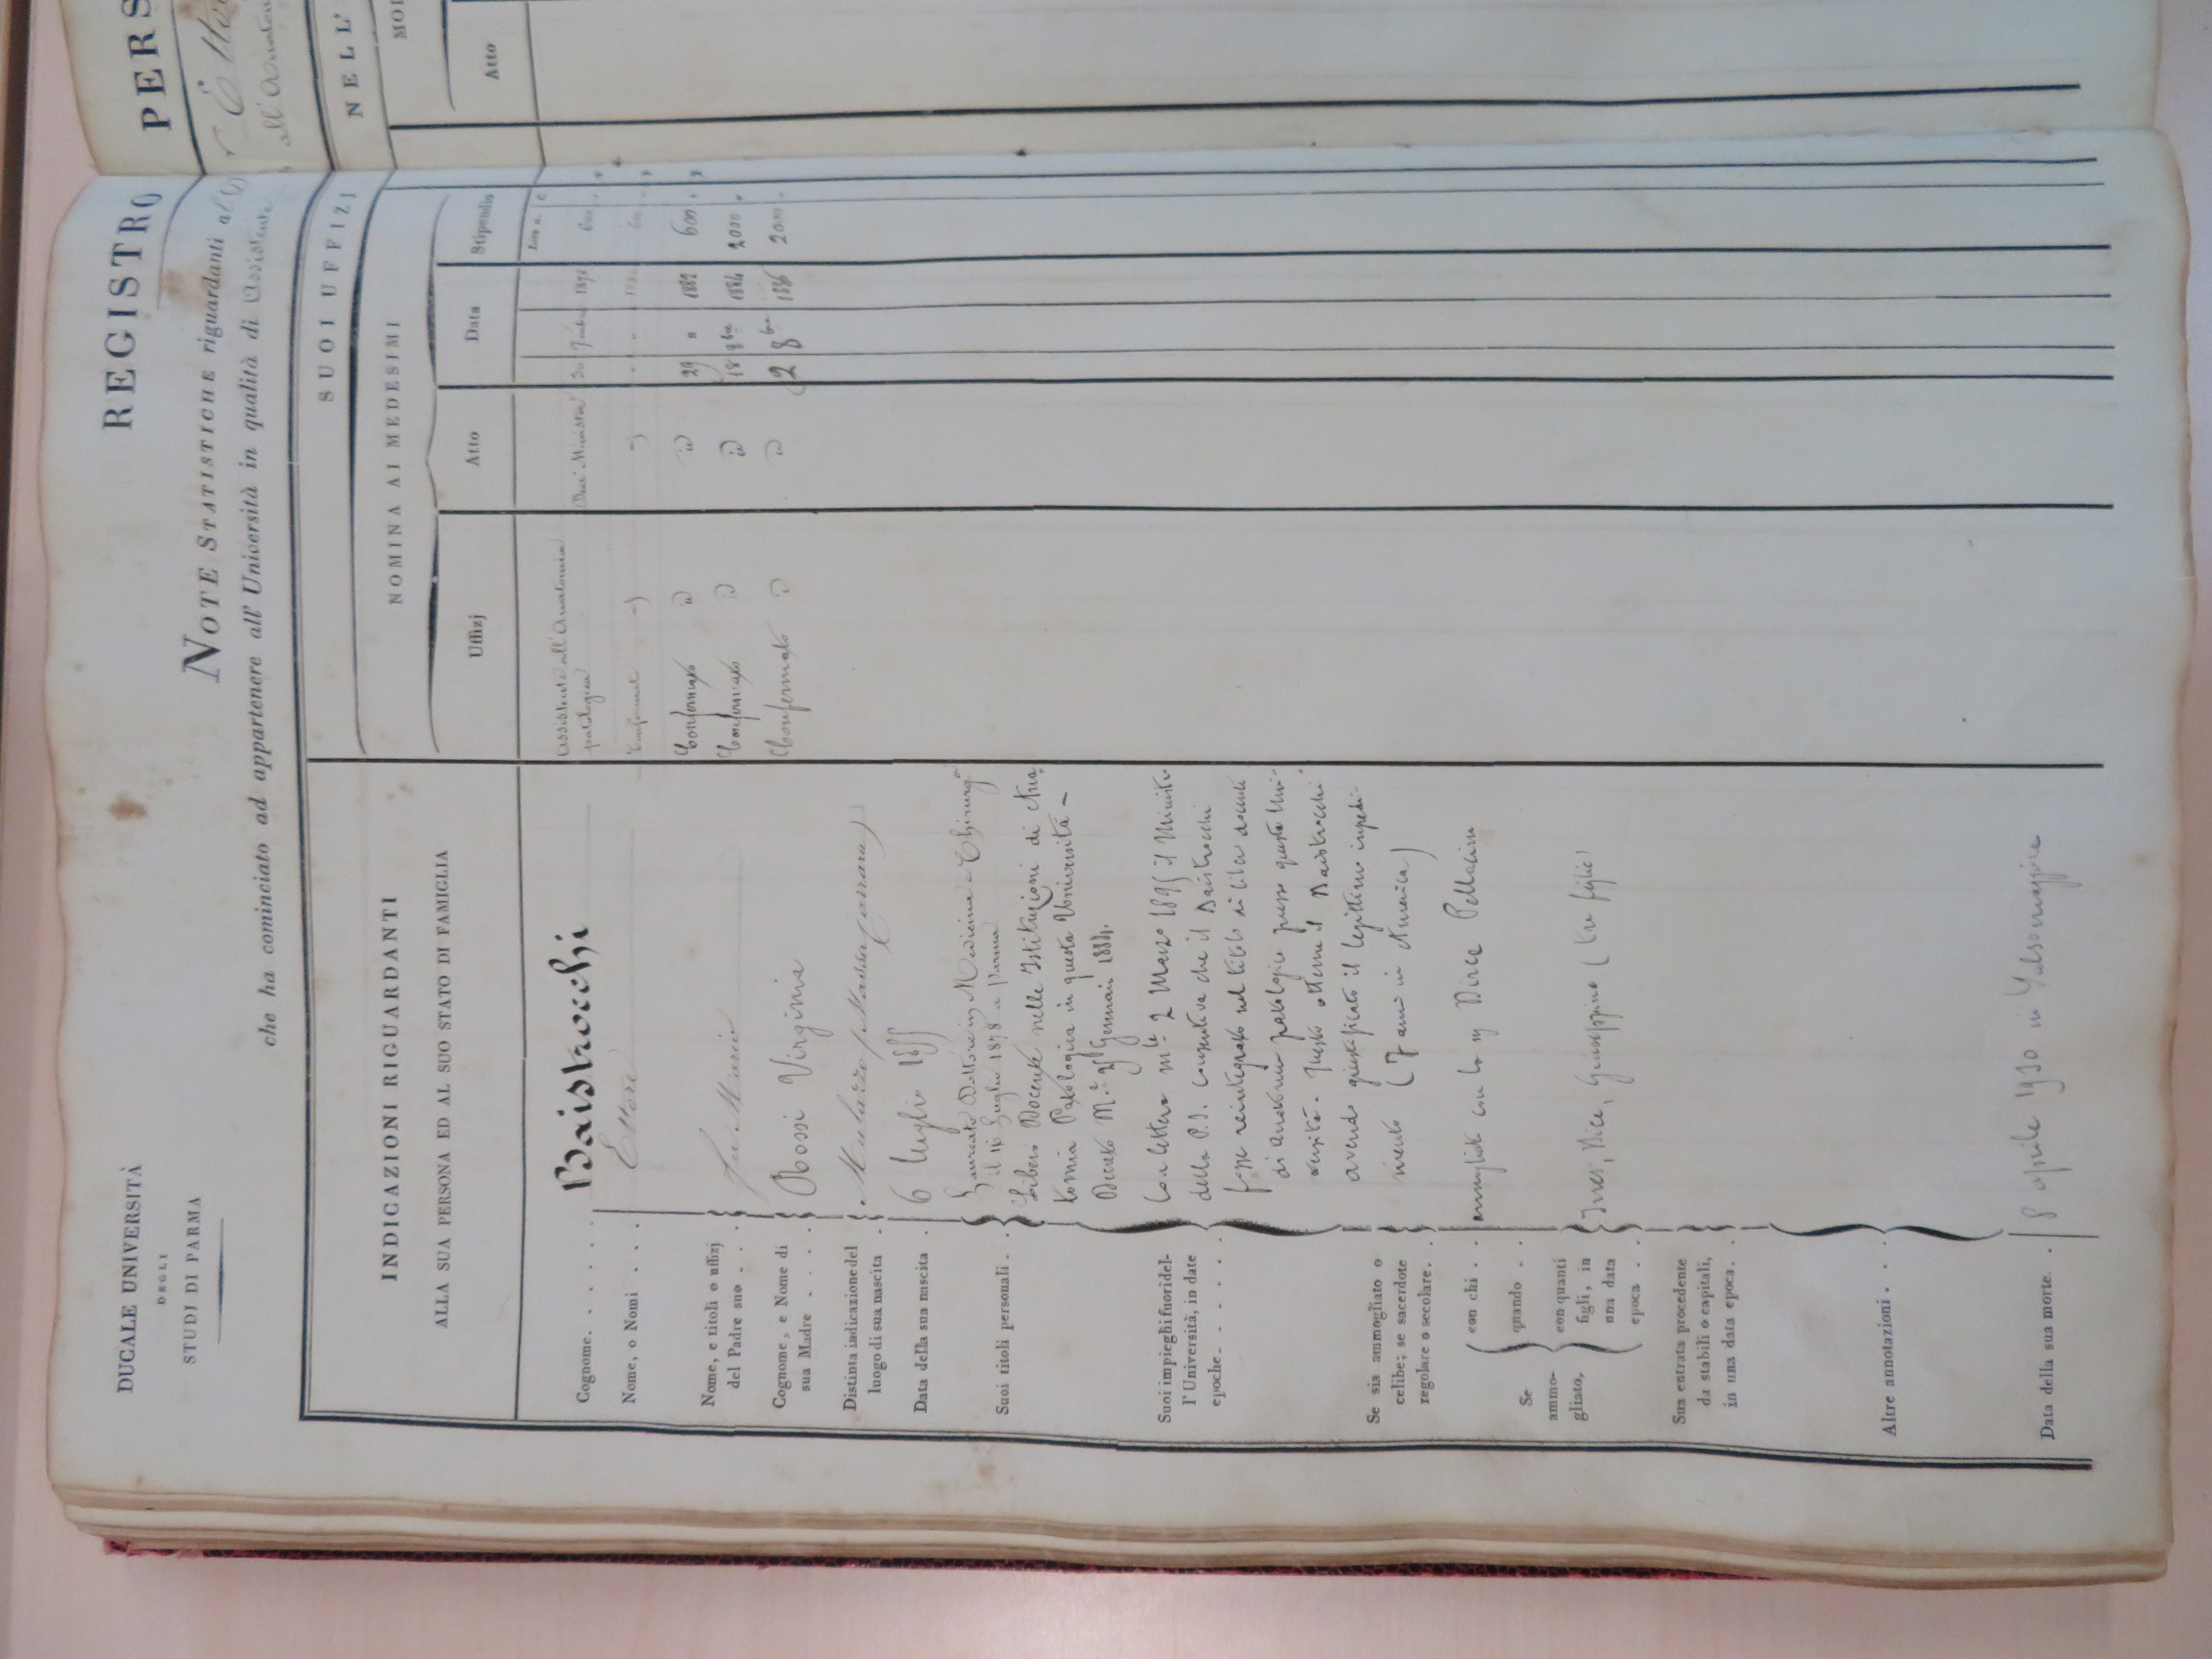 DUCALE UNIVERSITÀ
DEGLI
STUDI DI PARMA
REGISTRO
PERS
NOTE STATISTICHE riguardanti al
che ha cominciato ad appartenere all'Università in qualità di Assistente
all'Anatom
INDICAZIONI RIGUARDANTI
ALLA SUA PERSONA ED AL SUO STATO DI FAMIGLIA
SUOI UFFIZJ
NELL'
NOMINA AI MEDESIMI
MO
Uffizj
Atto
Data
Stipendio
Atto
Lire n. C.
Cognome. . . . . . Baistrocchi
Nome, o Nomi . . . Ettore
Nome, e titoli o uffizj
del Padre suo . . .
Cognome, e Nome di
sua Madre . . . . Bossi Virginia
Distinta indicazione del
luogo di sua nascita . Mulazzo (Massa Carrara)
Data della sua nascita . 6 luglio 1855
Suoi titoli personali . .
Laureato Dottore in Medicina e Chirurgia
il 14 Luglio 1878 a Parma
Libero Docente nelle Istituzioni di Ana
tomia Patologica in questa Università -
Decreto M.e 25 Gennaio 1884.
Suoi impieghi fuori del-
l'Università, in date
epoche. . . . . .
Con lettera m.le 2 Marzo 1895 il Ministro
della P.I. consentiva che il Baistrocchi
fosse reintegrato nel titolo di libero docente
di anatomia patologica presso questa Uni-
versità. Questo ottenne il Baistrocchi
avendo giustificato il legittimo impedi-
mento (7 anni in America)
Se sia ammogliato o
celibe; se sacerdote
regolare o secolare. .
Se
ammo-
gliato,
con chi . . ammogliato con la Dirce Pellacini
quando . .
con quanti
figli, in
una data
epoca . . Ines, Dice, Giuseppina (tre figlie)
Sua entrata procedente
da stabili o capitali,
in una data epoca. .
Altre annotazioni . . .
Data della sua morte. . 8 aprile 1930 in Salsomaggiore
Assistente all'Anatomia
patologica Decr. Minister. 30 7mbre 1878 600
Confermato id id " " 600
Confermato id id 29 " 1882 600
Confermato id id 18 8bre 1884 2000
Confermato id id 2 8bre 1886 2000